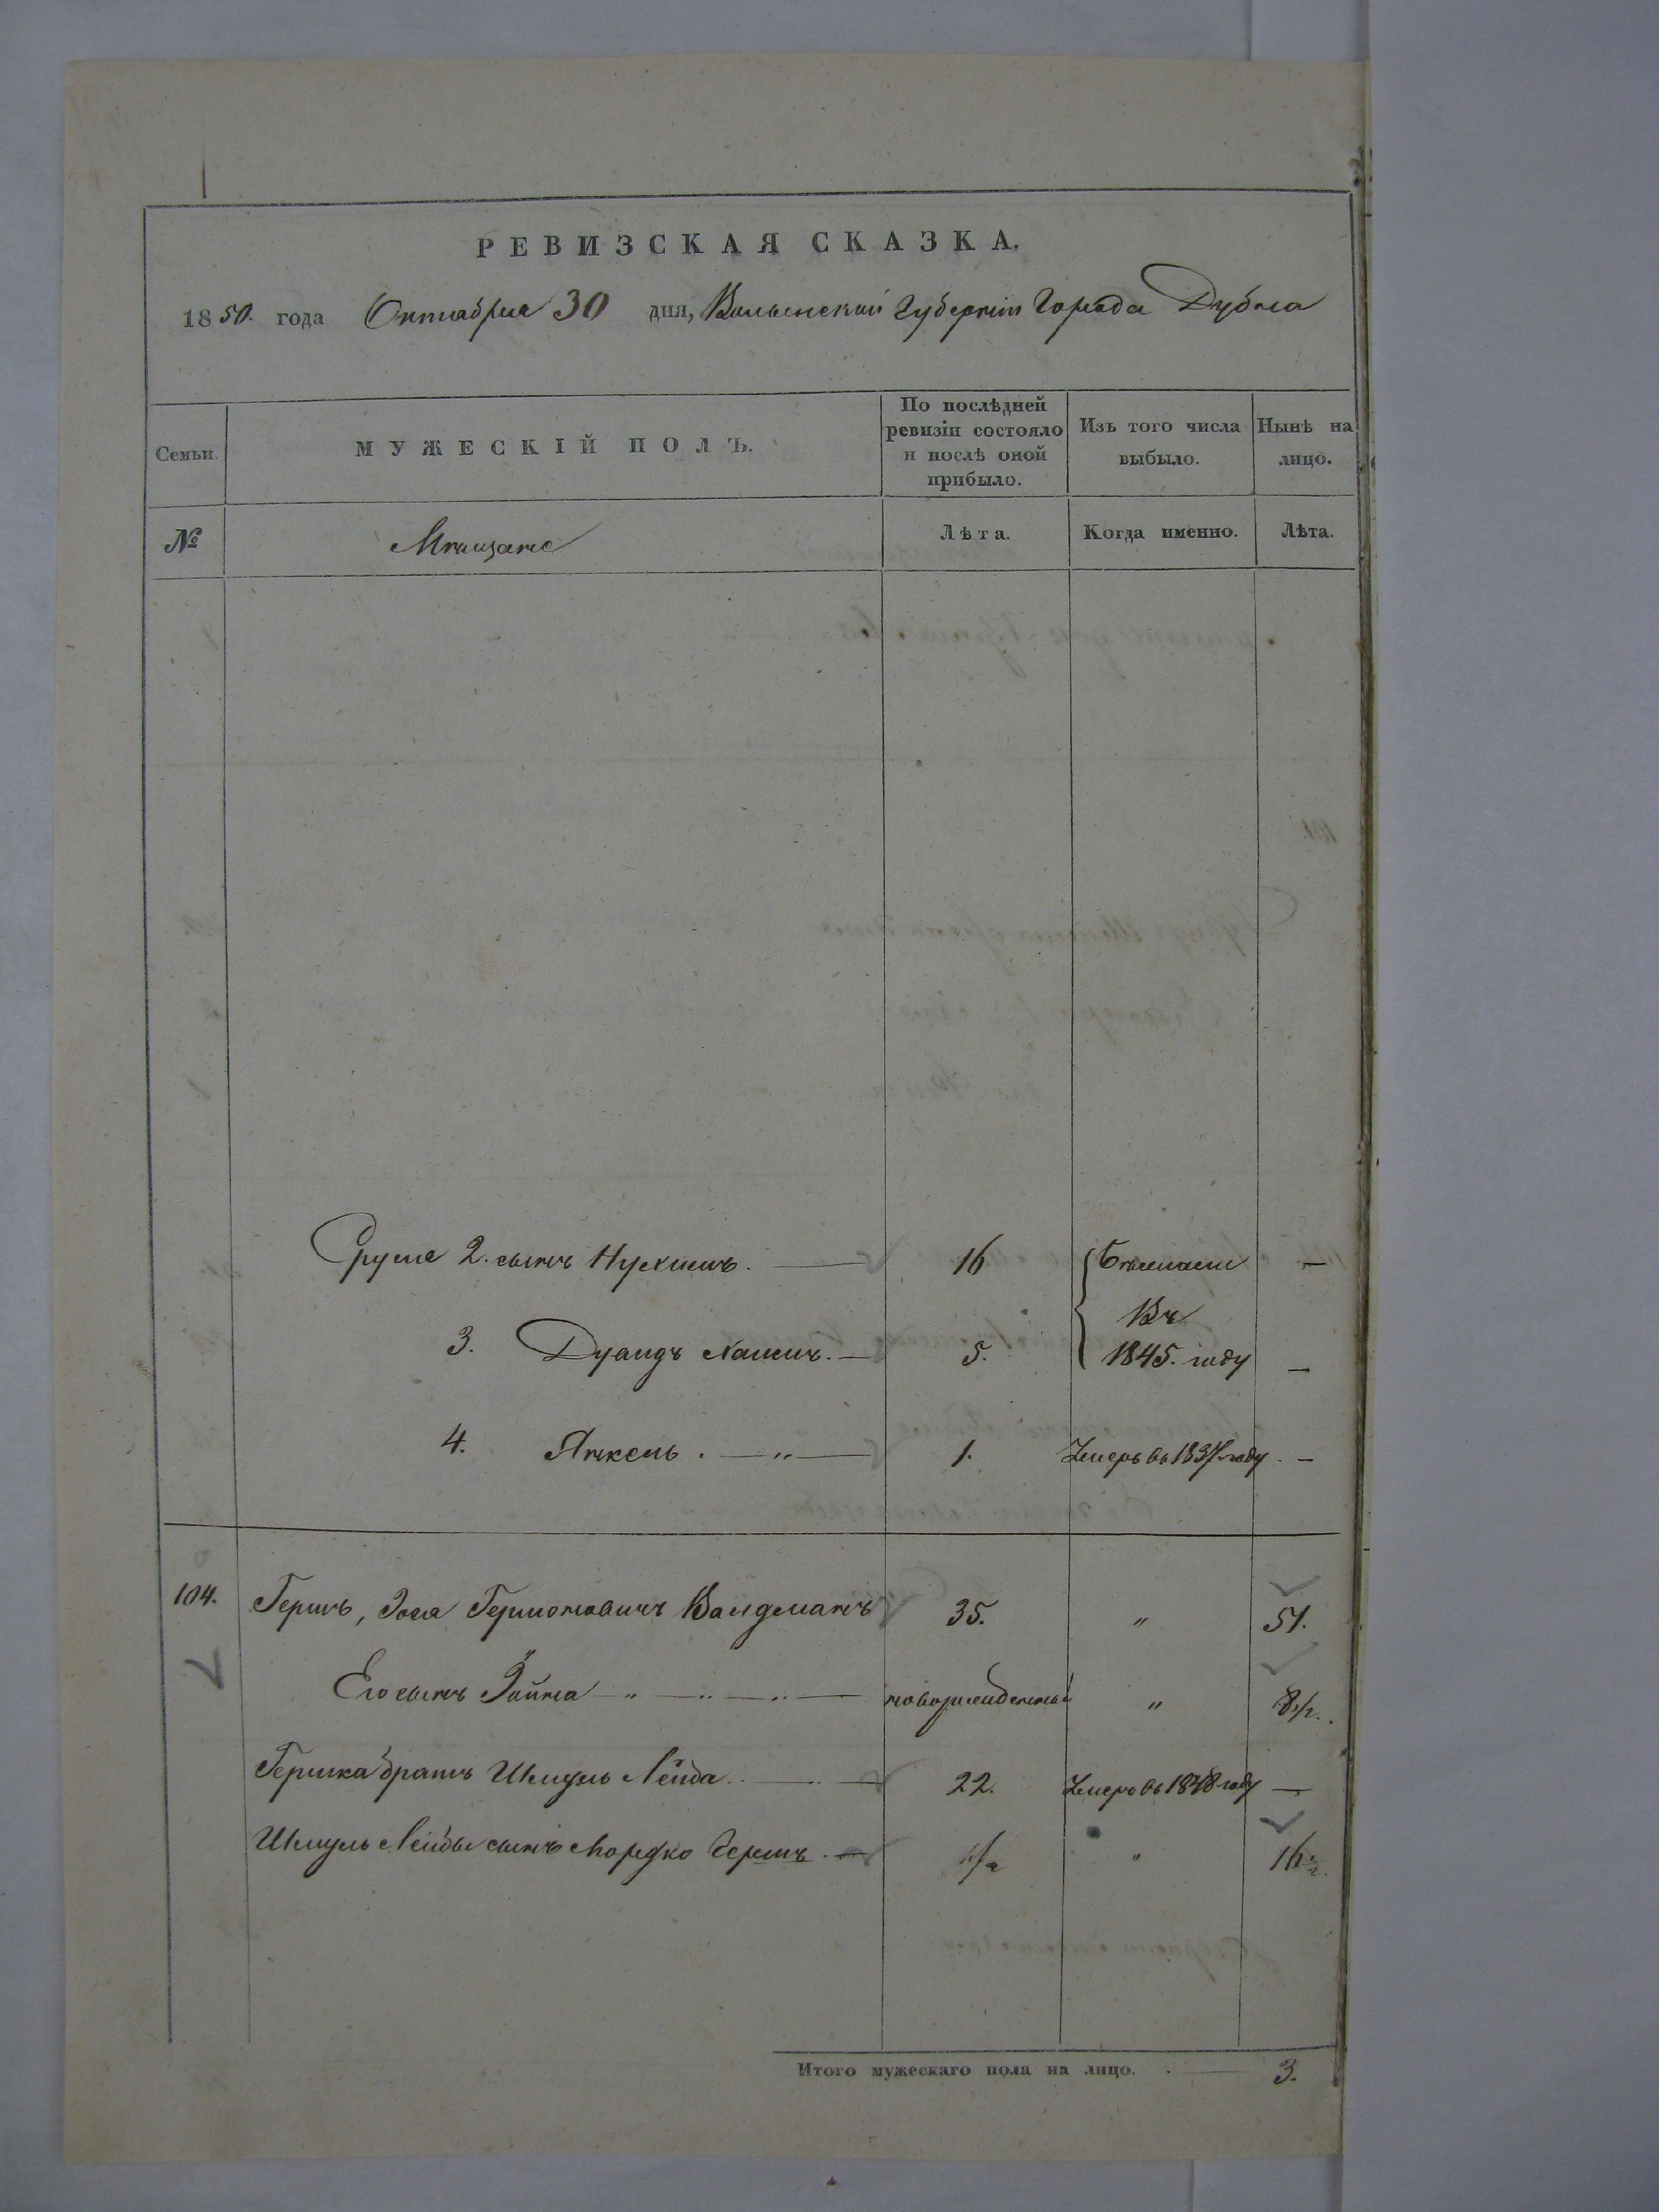 РЕВИЗСКАЯ СКАЗКА.
1850. года Октября 30 дня, Волынской Губернiи Города Дубна
Семьи. МУЖЕСКІЙ ПОЛЪ. По послѣдней ревизіи состояло и послѣ оной прибыло. Изъ того числа выбыло. Нынѣ на лицо.
№ Мѣщане Лѣта. Когда именно. Лѣта.
Сруля 2. сынъ Нухимъ. — 16 —
Въ
3. Дувидъ Хаимъ. — 5. 1845. году —
4. Янкель. — " — 1. Умеръ въ 1837 году. —
104. Гершъ, Іося Гершоновичъ Валдманъ 35. " 51.
Его сынъ — " — " — " — новорожденный " 8 1/2.
Гершка братъ Шмуль Лейба. — " — 22. Умеръ въ 1848 году —
Шмуль Лейбы сынъ Мордко Гершъ. — 1/2 " 16 1/2.
Итого мужескаго пола на лицо. — 3.